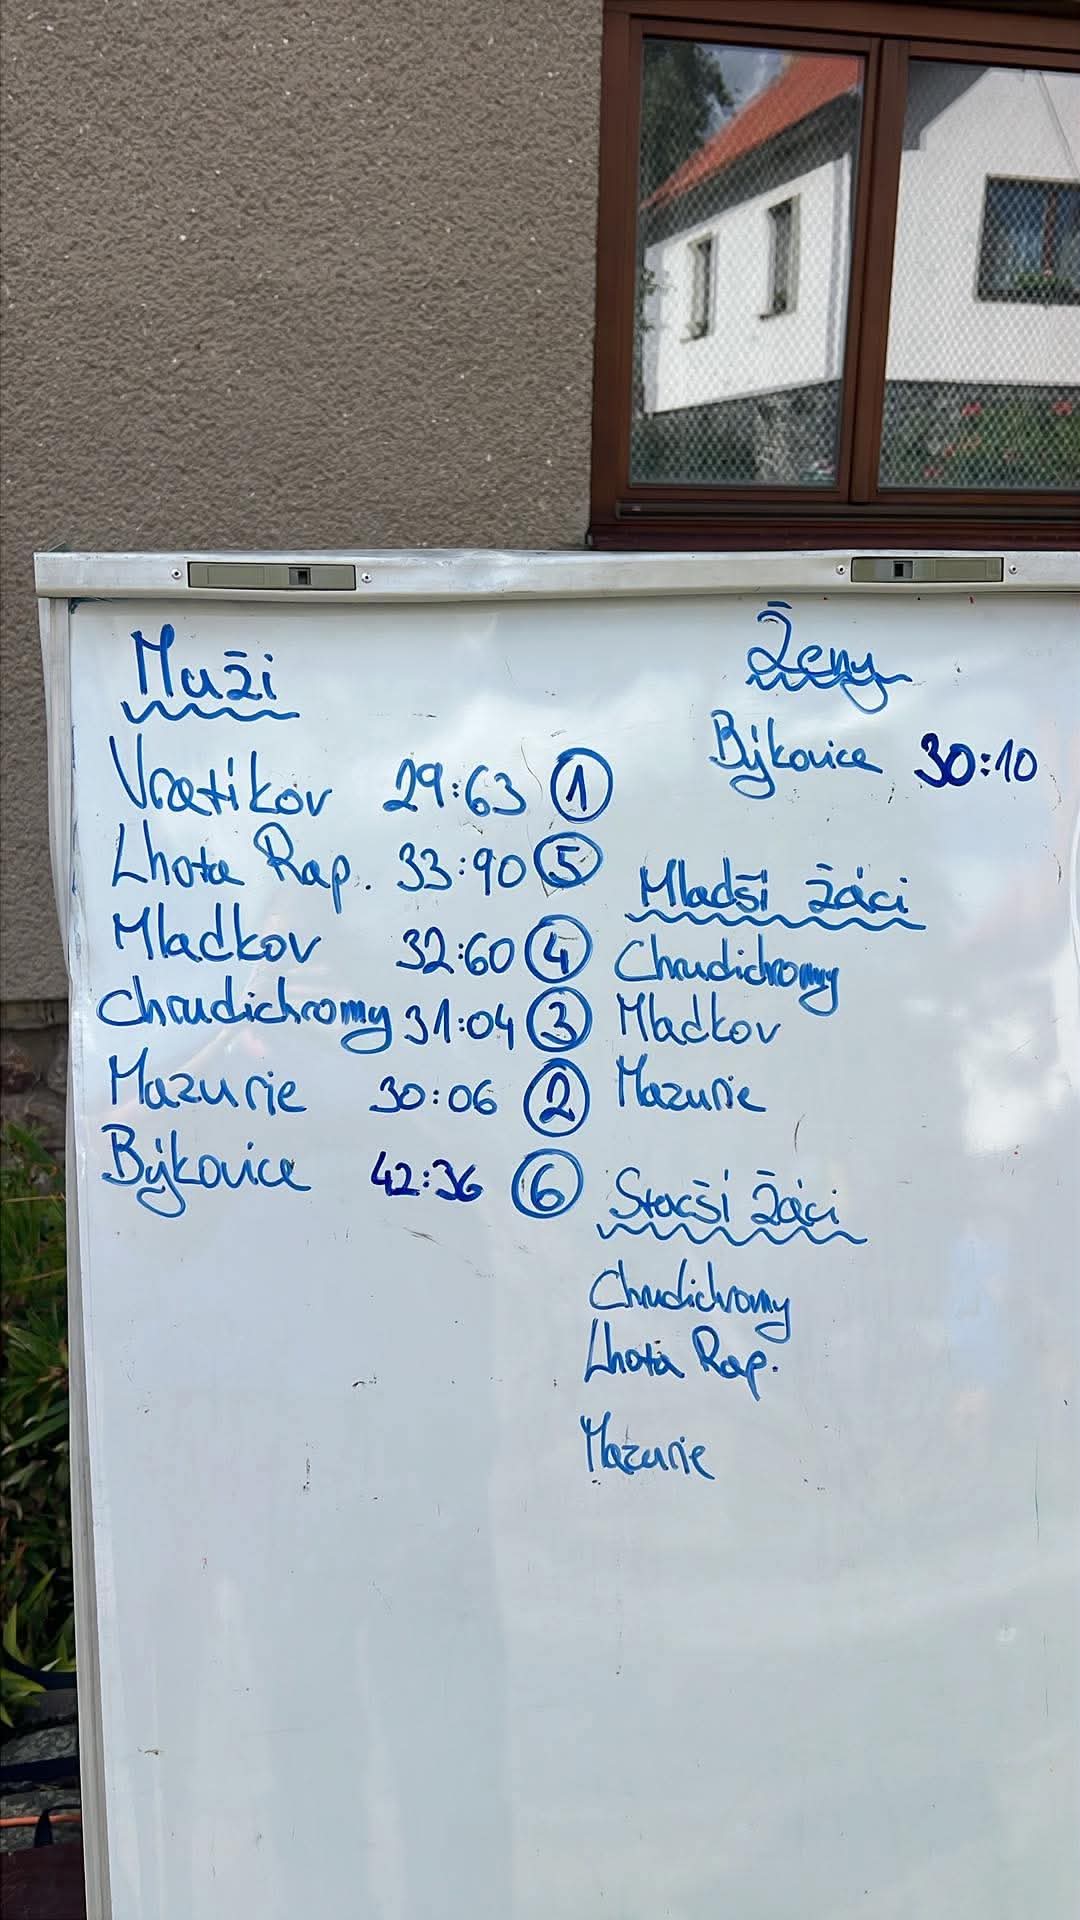 Muži
Vratíkov 29:63 1
Lhota Rap. 33:90 5
Mladkov 32:60 4
Chrudichromy 31:04 3
Mazurie 30:06 2
Býkovice 42:36 6
Ženy
Býkovice 30:10
Mladší žáci
Chrudichromy
Mladkov
Mazurie
Starší žáci
Chrudichromy
Lhota Rap.
Mazurie